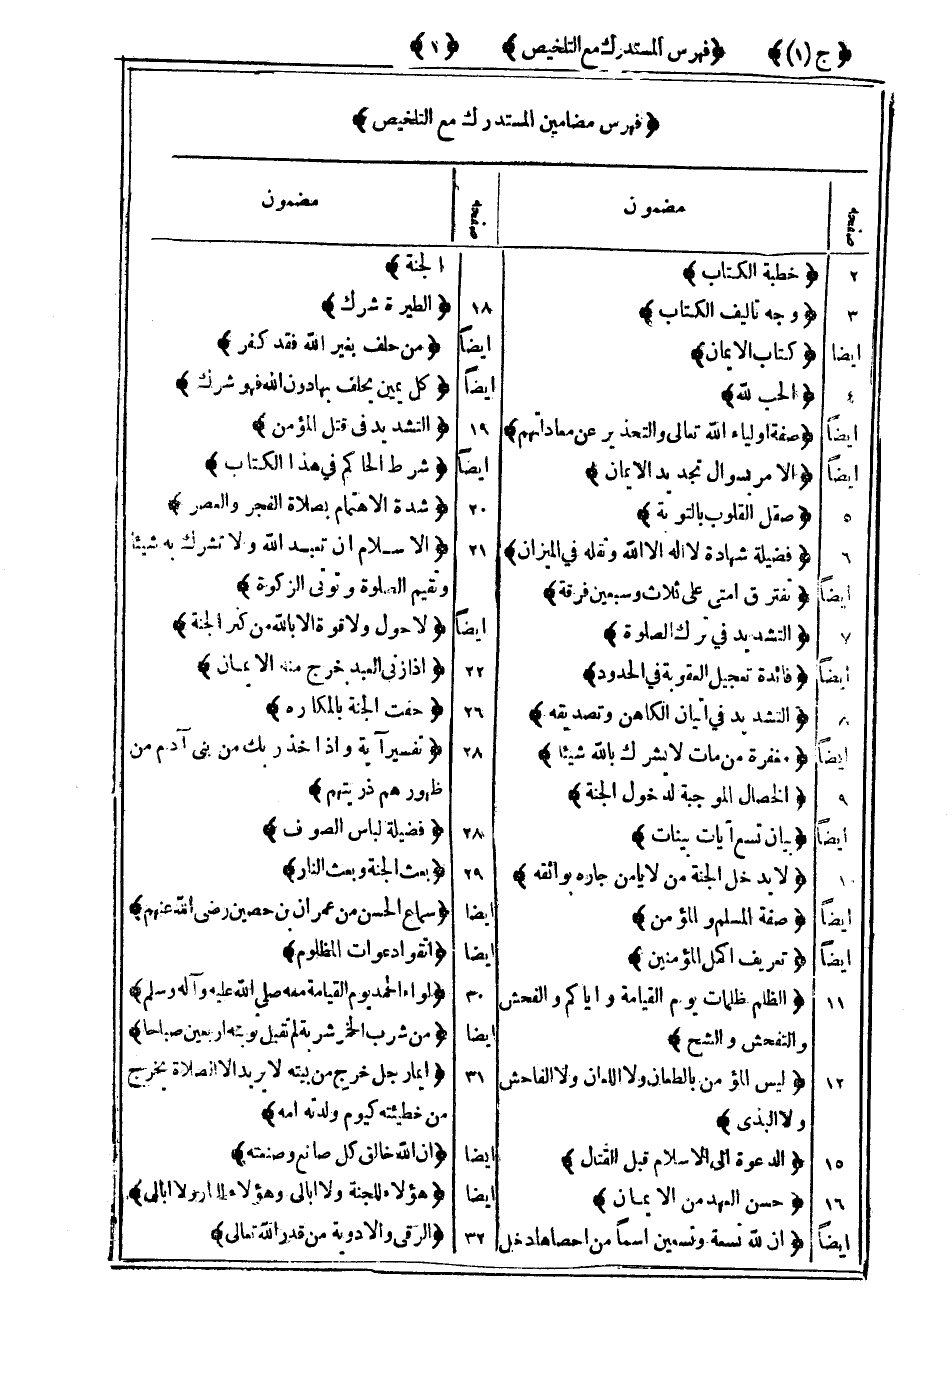 ﴿ ج (١) ﴾ ﴿ فهرس المستدرك مع التلخيص ﴾ ﴿ ١ ﴾
﴿ فهرس مضامين المستدرك مع التلخيص ﴾
صفحه مضمون
٢ ﴿ خطبة الكتاب ﴾
٣ ﴿ وجه تاليف الكتاب ﴾
ايضا ﴿ كتاب الايمان ﴾
٤ ﴿ الحب لله ﴾
ايضاً ﴿ صفة اولياء الله تعالى والتحذير عن معاداتهم ﴾
ايضاً ﴿ الامر بسوال تجديد الايمان ﴾
٥ ﴿ صقل القلوب بالتوبة ﴾
٦ ﴿ فضيلة شهادة لا اله الا الله وثقله في الميزان ﴾
ايضاً ﴿ تفترق امتى على ثلاث وسبعين فرقة ﴾
٧ ﴿ التشديد في ترك الصلوة ﴾
ايضاً ﴿ فائدة تعجيل العقوبة في الحدود ﴾
٨ ﴿ التشديد في اتيان الكاهن وتصديقه ﴾
ايضاً ﴿ مغفرة من مات لا يشرك بالله شيئا ﴾
٩ ﴿ الخصال الموجبة لدخول الجنة ﴾
ايضاً ﴿ بيان تسع آيات بينات ﴾
١٠ ﴿ لا يدخل الجنة من لا يامن جاره بوائقه ﴾
ايضاً ﴿ صفة المسلم والمؤمن ﴾
ايضاً ﴿ تعريف اكمل المؤمنين ﴾
١١ ﴿ الظلم ظلمات يوم القيامة و اياكم والفحش
والتفحش والشح ﴾
١٢ ﴿ ليس المؤمن بالطعان ولا اللعان ولا الفاحش
ولا البذى ﴾
١٥ ﴿ الدعوة الى الاسلام قبل القتال ﴾
١٦ ﴿ حسن العهد من الايمان ﴾
ايضاً ﴿ ان لله تسعة وتسعين اسماً من احصاها دخل
صفحه مضمون
الجنة ﴾
١٨ ﴿ الطيرة شرك ﴾
ايضاً ﴿ من حلف بغير الله فقد كفر ﴾
ايضاً ﴿ كل يمين يحلف بها دون الله فهو شرك ﴾
١٩ ﴿ التشديد فى قتل المؤمن ﴾
ايضاً ﴿ شرط الحاكم في هذا الكتاب ﴾
٢٠ ﴿ شدة الاهتمام بصلاة الفجر والعصر ﴾
٢١ ﴿ الاسلام ان تعبد الله ولا تشرك به شيئا
وتقيم الصلوة وتوتى الزكوة ﴾
ايضاً ﴿ لا حول ولا قوة الا بالله من كنز الجنة ﴾
٢٢ ﴿ اذا زنى العبد خرج منه الايمان ﴾
٢٦ ﴿ حفت الجنة بالمكاره ﴾
٢٨ ﴿ تفسير آية واذ اخذ ربك من بنى آدم من
ظهورهم ذريتهم ﴾
٢٨ ﴿ فضيلة لباس الصوف ﴾
٢٩ ﴿ بعث الجنة وبعث النار ﴾
ايضا ﴿ سماع الحسن من عمران بن حصين رضى الله عنهم ﴾
ايضا ﴿ اتقوا دعوات المظلوم ﴾
٣٠ ﴿ لواء الحمد يوم القيامة معه صلى الله عليه وآله وسلم ﴾
ايضا ﴿ من شرب الخمر شربة لم تقبل توبته اربعين صباحا ﴾
٣١ ﴿ ايما رجل خرج من بيته لا يريد الا الصلاة يخرج
من خطيئته كيوم ولدته امه ﴾
ايضا ﴿ ان الله خالق كل صانع وصنعته ﴾
ايضا ﴿ هؤلاء للجنة ولا ابالى وهؤلاء للنار ولا ابالى ﴾
٣٢ ﴿ الرقى والادوية من قدر الله تعالى ﴾